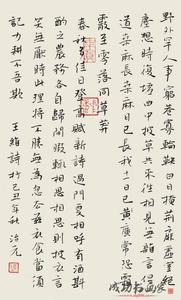 野外罕人事窮巷寡輪鞅白日掩荊扉虛室絕
塵想時復墟曲中披草共來往相見無雜言但
道桑麻長桑麻日已長我土日已廣常恐霜
霰至零落同草莽
春秋多佳日登高賦新詩過門更相呼有酒斟
酌之農務各自歸閒暇輒相思相思則披衣言
笑無厭時此理將不勝無為忽去茲衣食當須
記力耕不吾欺 王維詩抄己丑年秋
成功书画家